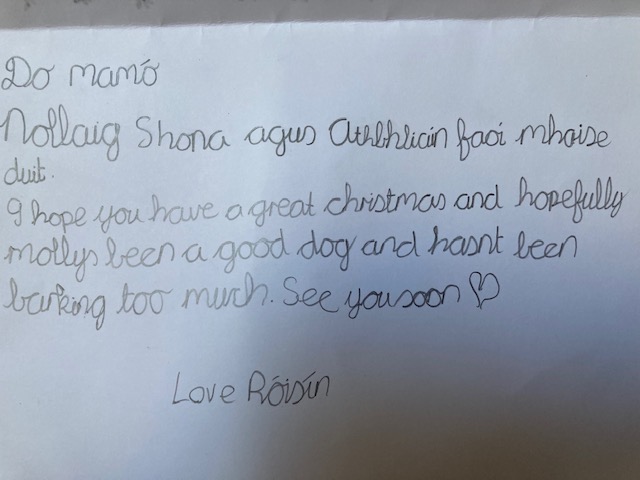 Do mamó
Nollaig Shona agus Athbhliain faoi mhaise
duit.
I hope you have a great christmas and hopefully
mollys been a good dog and hasnt been
barking too much. See you soon ♡
Love Róisín